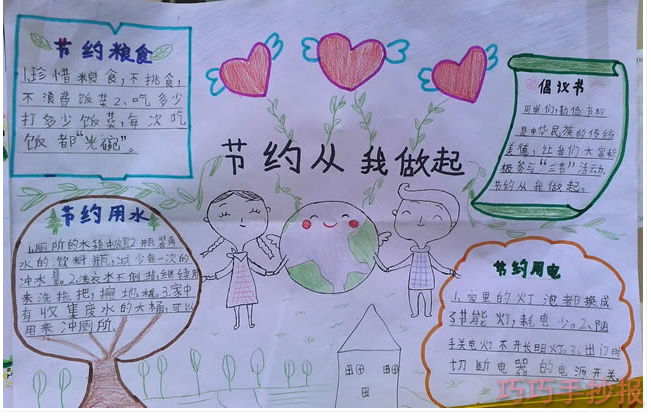 节约粮食
1.珍惜粮食,不挑食,
不浪费饭菜2、吃多少
打多少饭菜,每次吃
饭都“光碗”。
倡议书
同学们,勤俭节约
是中华民族的传统
美德,让我们大家积
极参与“三节”活动,
节约从我做起。
节约从我做起
节约用水
1.厕所的水箱中放2瓶装满
水的饮料瓶,减少每一次的
冲水量。2.洗衣水不倒掉,继续用
来洗拖把,擦地板。3.家中
有收集废水的大桶,可以
用来冲厕所。
节约用电
1.家里的灯泡都换成
节能灯,耗电少。2、随
手关电灯不开长明灯。3、出门时
切断电器的电源开关
巧巧手抄报